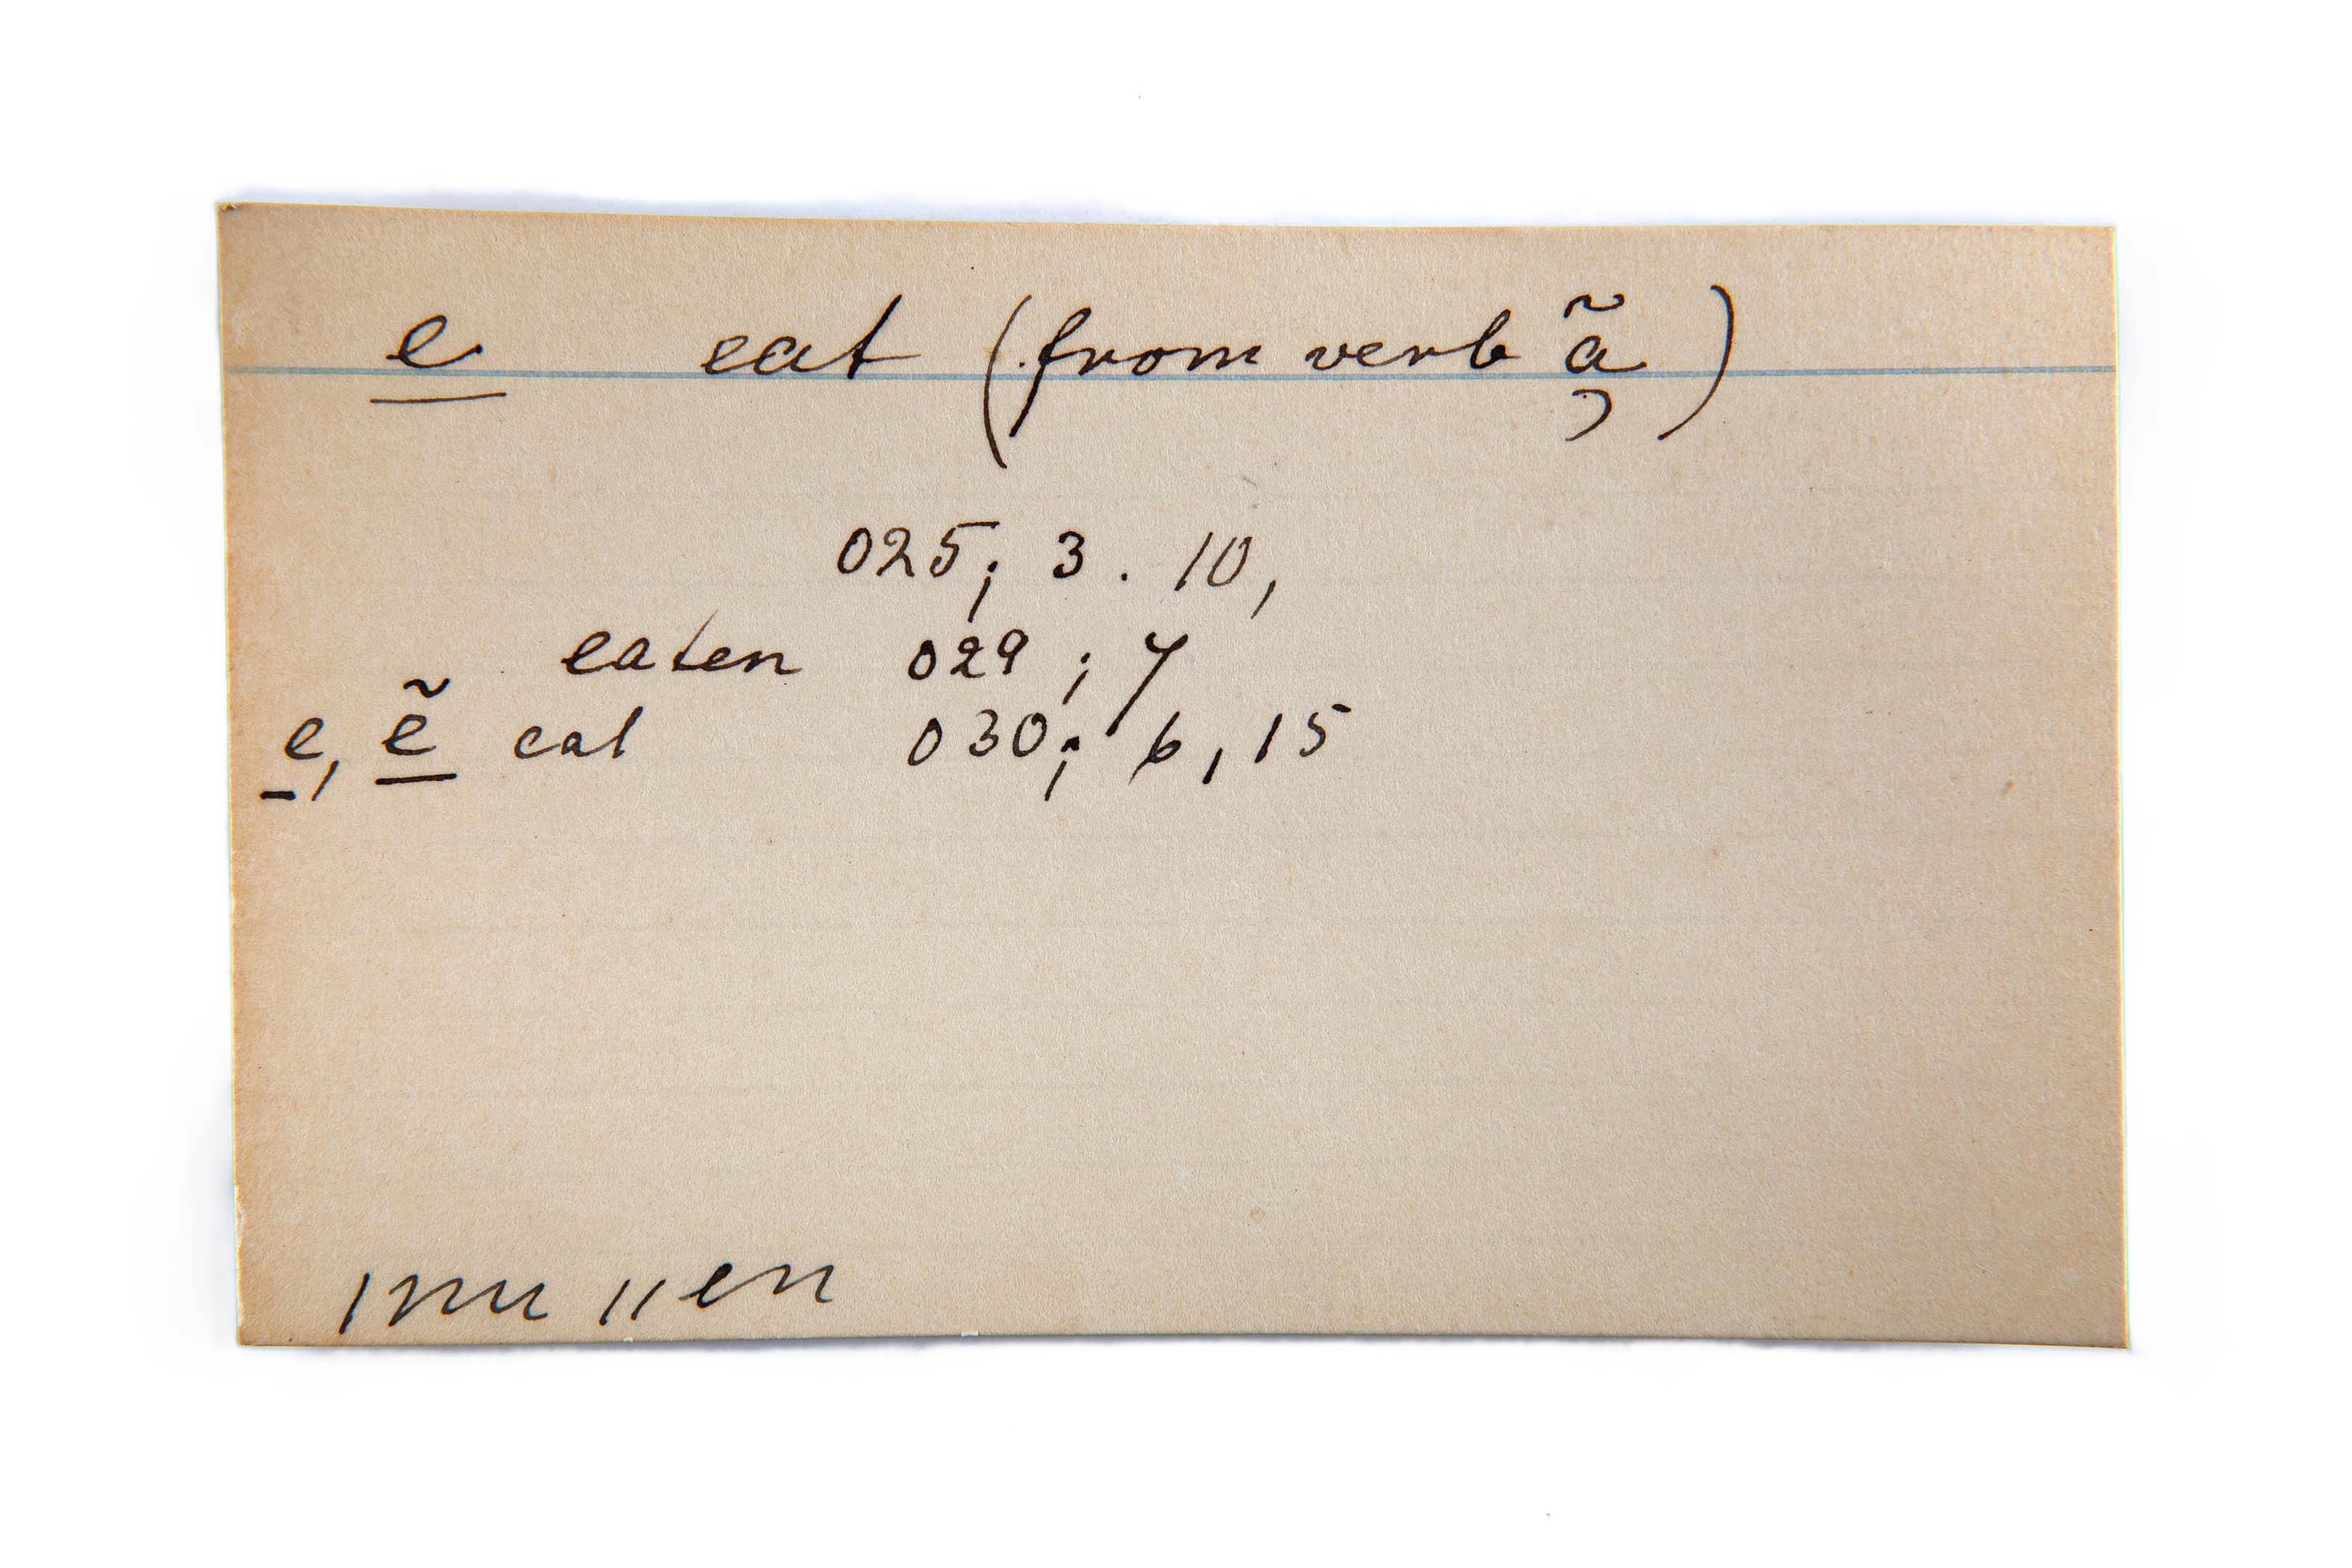 e eat (from verb ą̃)
025; 3. 10,
eaten 029; 7
e, ẽ eat 030; 6, 15